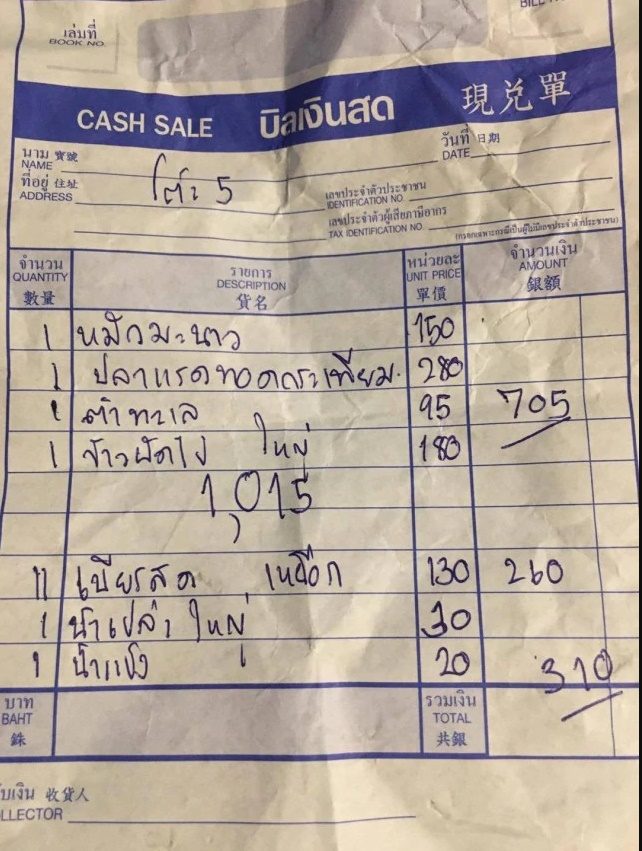 เล่มที่
BOOK NO.
CASH SALE บิลเงินสด 現兌單
นาม 寶號
NAME
วันที่ 日期
DATE
ที่อยู่ 住址
ADDRESS
โต๊ะ 5
เลขประจำตัวประชาชน
IDENTIFICATION NO.
เลขประจำตัวผู้เสียภาษีอากร
TAX IDENTIFICATION NO.
(กรอกเฉพาะกรณีเป็นผู้ไม่มีเลขประจำตัวประชาชน)
จำนวน QUANTITY 數量 รายการ DESCRIPTION 貨名 หน่วยละ UNIT PRICE 單價 จำนวนเงิน AMOUNT 銀額
1 หมึกมะนาว 150
1 ปลาแรดทอดกระเทียม 280
1 ตำทะเล 95 705
1 ข้าวผัดไข่ ใหญ่ 180
1,015
11 เบียรสด เหยือก 130 260
1 น้ำเปล่า ใหญ่ 30
1 น้ำแข็ง 20 310
บาท BAHT 銖 รวมเงิน TOTAL 共銀
收貨人